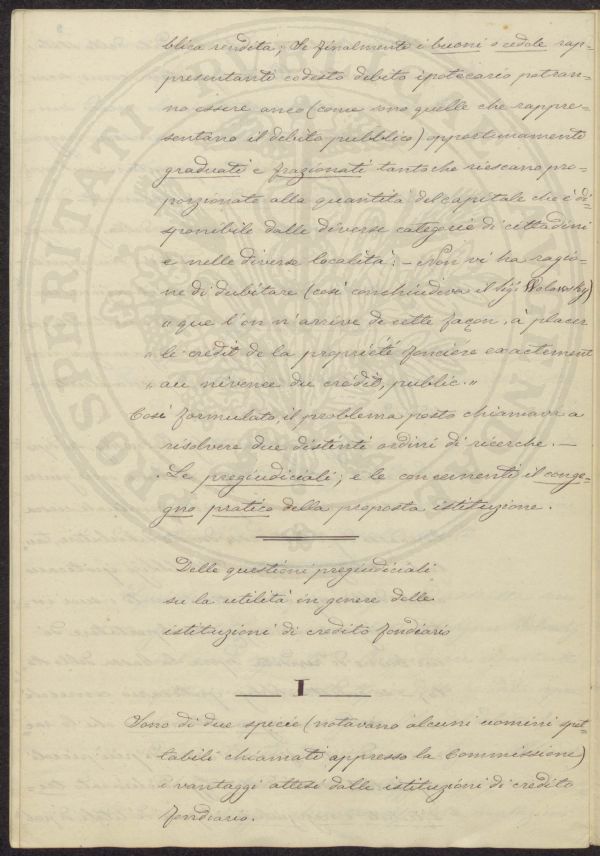 blica rendita; Se finalmente i buoni o cedole rap=
presentanti codesto debito ipotecario potran=
no essere anco (come sono quelle che rappre=
sentano il debito pubblico) opportunamente
graduati e frazionati tanto che riescano pro=
porzionate alla quantità del capitale che è di=
sponibile dalle diverse categorie di cittadini
e nelle diverse località: — Non vi ha ragio=
ne di dubitare (così conchiudeva il Sig. Wolowsky)
"que l'on n'arrive de cette façon, à placer
"le crédit de la propriété foncière exactement
"au niveau du crédit, public."
Così formulato, il problema posto chiamava a
risolvere due distinti ordini di ricerche. —
Le pregiudiciali; e le concernenti il conge=
gno pratico della proposta istituzione.
Delle questioni pregiudiciali
su la utilità in genere delle
istituzioni di credito fondiario
I
Sono di due specie (notavano alcuni uomini spet=
tabili chiamati appresso la Commissione)
i vantaggi attesi dalle istituzioni di credito
fondiario.
PROSPERITATI PUBLICAE